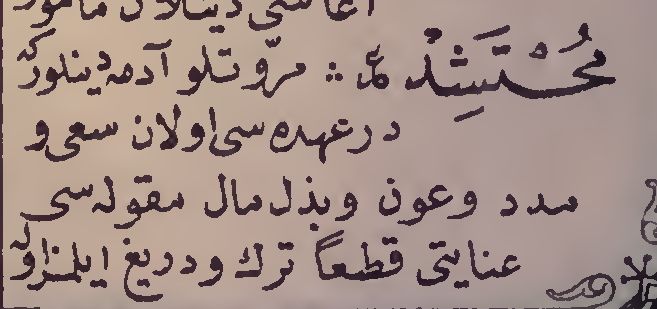 اغاسی دینلان مامور
مُحْتَشِدْ ∴ مروّتلو آدمه دینلور که
در عهده سی اولان سعی و
مدد و عون و بذل مال مقوله سی
عنایتی قطعاً ترك و دریغ ایلمز اوله